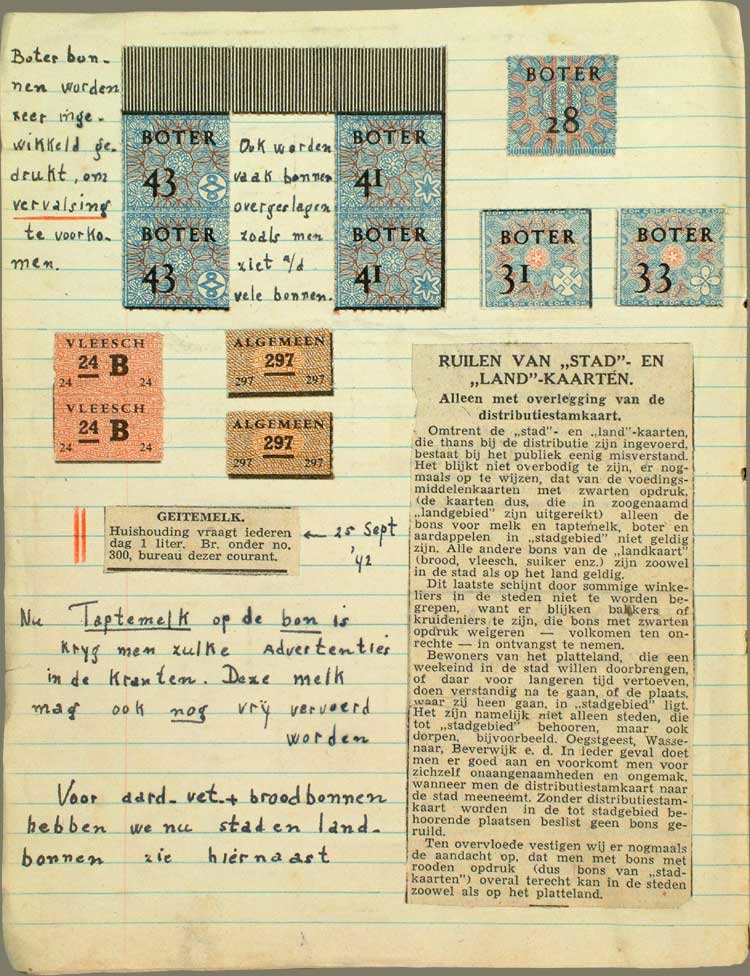 Boter bon-
nen worden
zeer inge-
wikkeld ge-
drukt, om
vervalsing
te voorko-
men.
BOTER
43
BOTER
43
Ook worden
vaak bonnen
overgeslagen
zoals men
ziet a/d
vele bonnen.
BOTER
41
BOTER
41
BOTER
28
BOTER
31
BOTER
33
VLEESCH
24 B
24 24
VLEESCH
24 B
24 24
ALGEMEEN
297
297 297
ALGEMEEN
297
297 297
GEITEMELK.
Huishouding vraagt iederen
dag 1 liter. Br. onder no.
300, bureau dezer courant.
← 25 Sept
'42
Nu Taptemelk op de bon is
kryg men zulke Advertenties
in de Kranten. Deze melk
mag ook nog vrij vervoerd
worden
Voor aard- vet- + broodbonnen
hebben we nu stad en land-
bonnen zie hiernaast
RUILEN VAN „STAD"- EN
„LAND"-KAARTEN.
Alleen met overlegging van de
distributiestamkaart.
Omtrent de „stad"- en „land"-kaarten,
die thans bij de distributie zijn ingevoerd,
bestaat bij het publiek eenig misverstand.
Het blijkt niet overbodig te zijn, er nog-
maals op te wijzen, dat van de voedings-
middelenkaarten met zwarten opdruk,
(de kaarten dus, die in zoogenaamd
„landgebied" zijn uitgereikt) alleen de
bons voor melk en taptemelk, boter en
aardappelen in „stadgebied" niet geldig
zijn. Alle andere bons van de „landkaart"
(brood, vleesch, suiker enz.) zijn zoowel
in de stad als op het land geldig.
Dit laatste schijnt door sommige winke-
liers in de steden niet te worden be-
grepen, want er blijken bakkers of
kruideniers te zijn, die bons met zwarten
opdruk weigeren — volkomen ten on-
rechte — in ontvangst te nemen.
Bewoners van het platteland, die een
weekeind in de stad willen doorbrengen,
of daar voor langeren tijd vertoeven,
doen verstandig na te gaan, of de plaats,
waar zij heen gaan, in „stadgebied" ligt.
Het zijn namelijk niet alleen steden, die
tot „stadgebied" behooren, maar ook
dorpen, bijvoorbeeld. Oegstgeest, Wasse-
naar, Beverwijk e. d. In ieder geval doet
men er goed aan en voorkomt men voor
zichzelf onaangenaamheden en ongemak,
wanneer men de distributiestamkaart naar
de stad meeneemt. Zonder distributiestam-
kaart worden in de tot stadgebied be-
hoorende plaatsen beslist geen bons ge-
ruild.
Ten overvloede vestigen wij er nogmaals
de aandacht op, dat men met bons met
rooden opdruk (dus bons van „stad-
kaarten") overal terecht kan in de steden
zoowel als op het platteland.